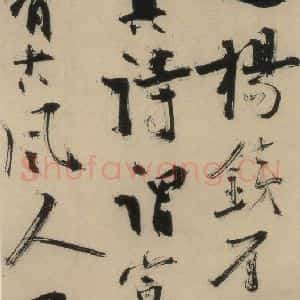 楊鐵
其詩謂宣
有古風人
Shufawang.CN